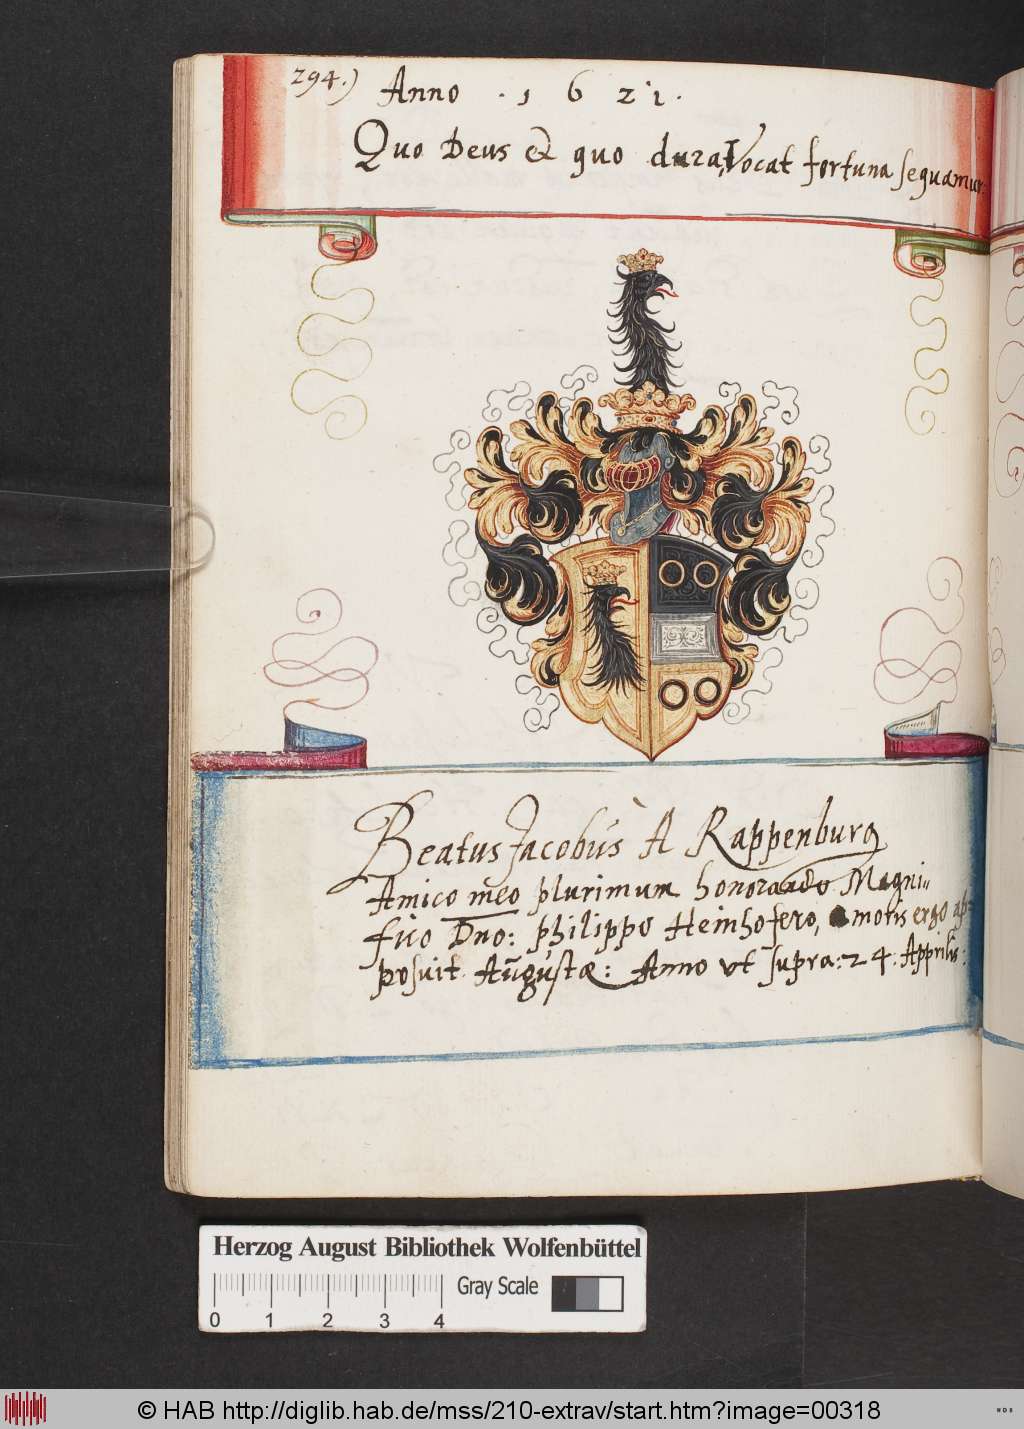 294.) Anno · 1 6 2 1 ·
Quo Deus et quo dura Vocat fortuna sequamur.
Beatus Jacobus A Rappenburg
Amico meo plurimum honorando Magni„
fico Dno: Philippo Heinhofero, amoris ergo ap„
posuit Augustæ: Anno ut supra: 24. Apprilis:
Herzog August Bibliothek Wolfenbüttel
Gray Scale
0 1 2 3 4
© HAB http://diglib.hab.de/mss/210-extrav/start.htm?image=00318